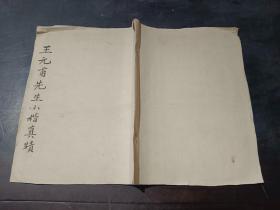 王元甫先生小楷真蹟